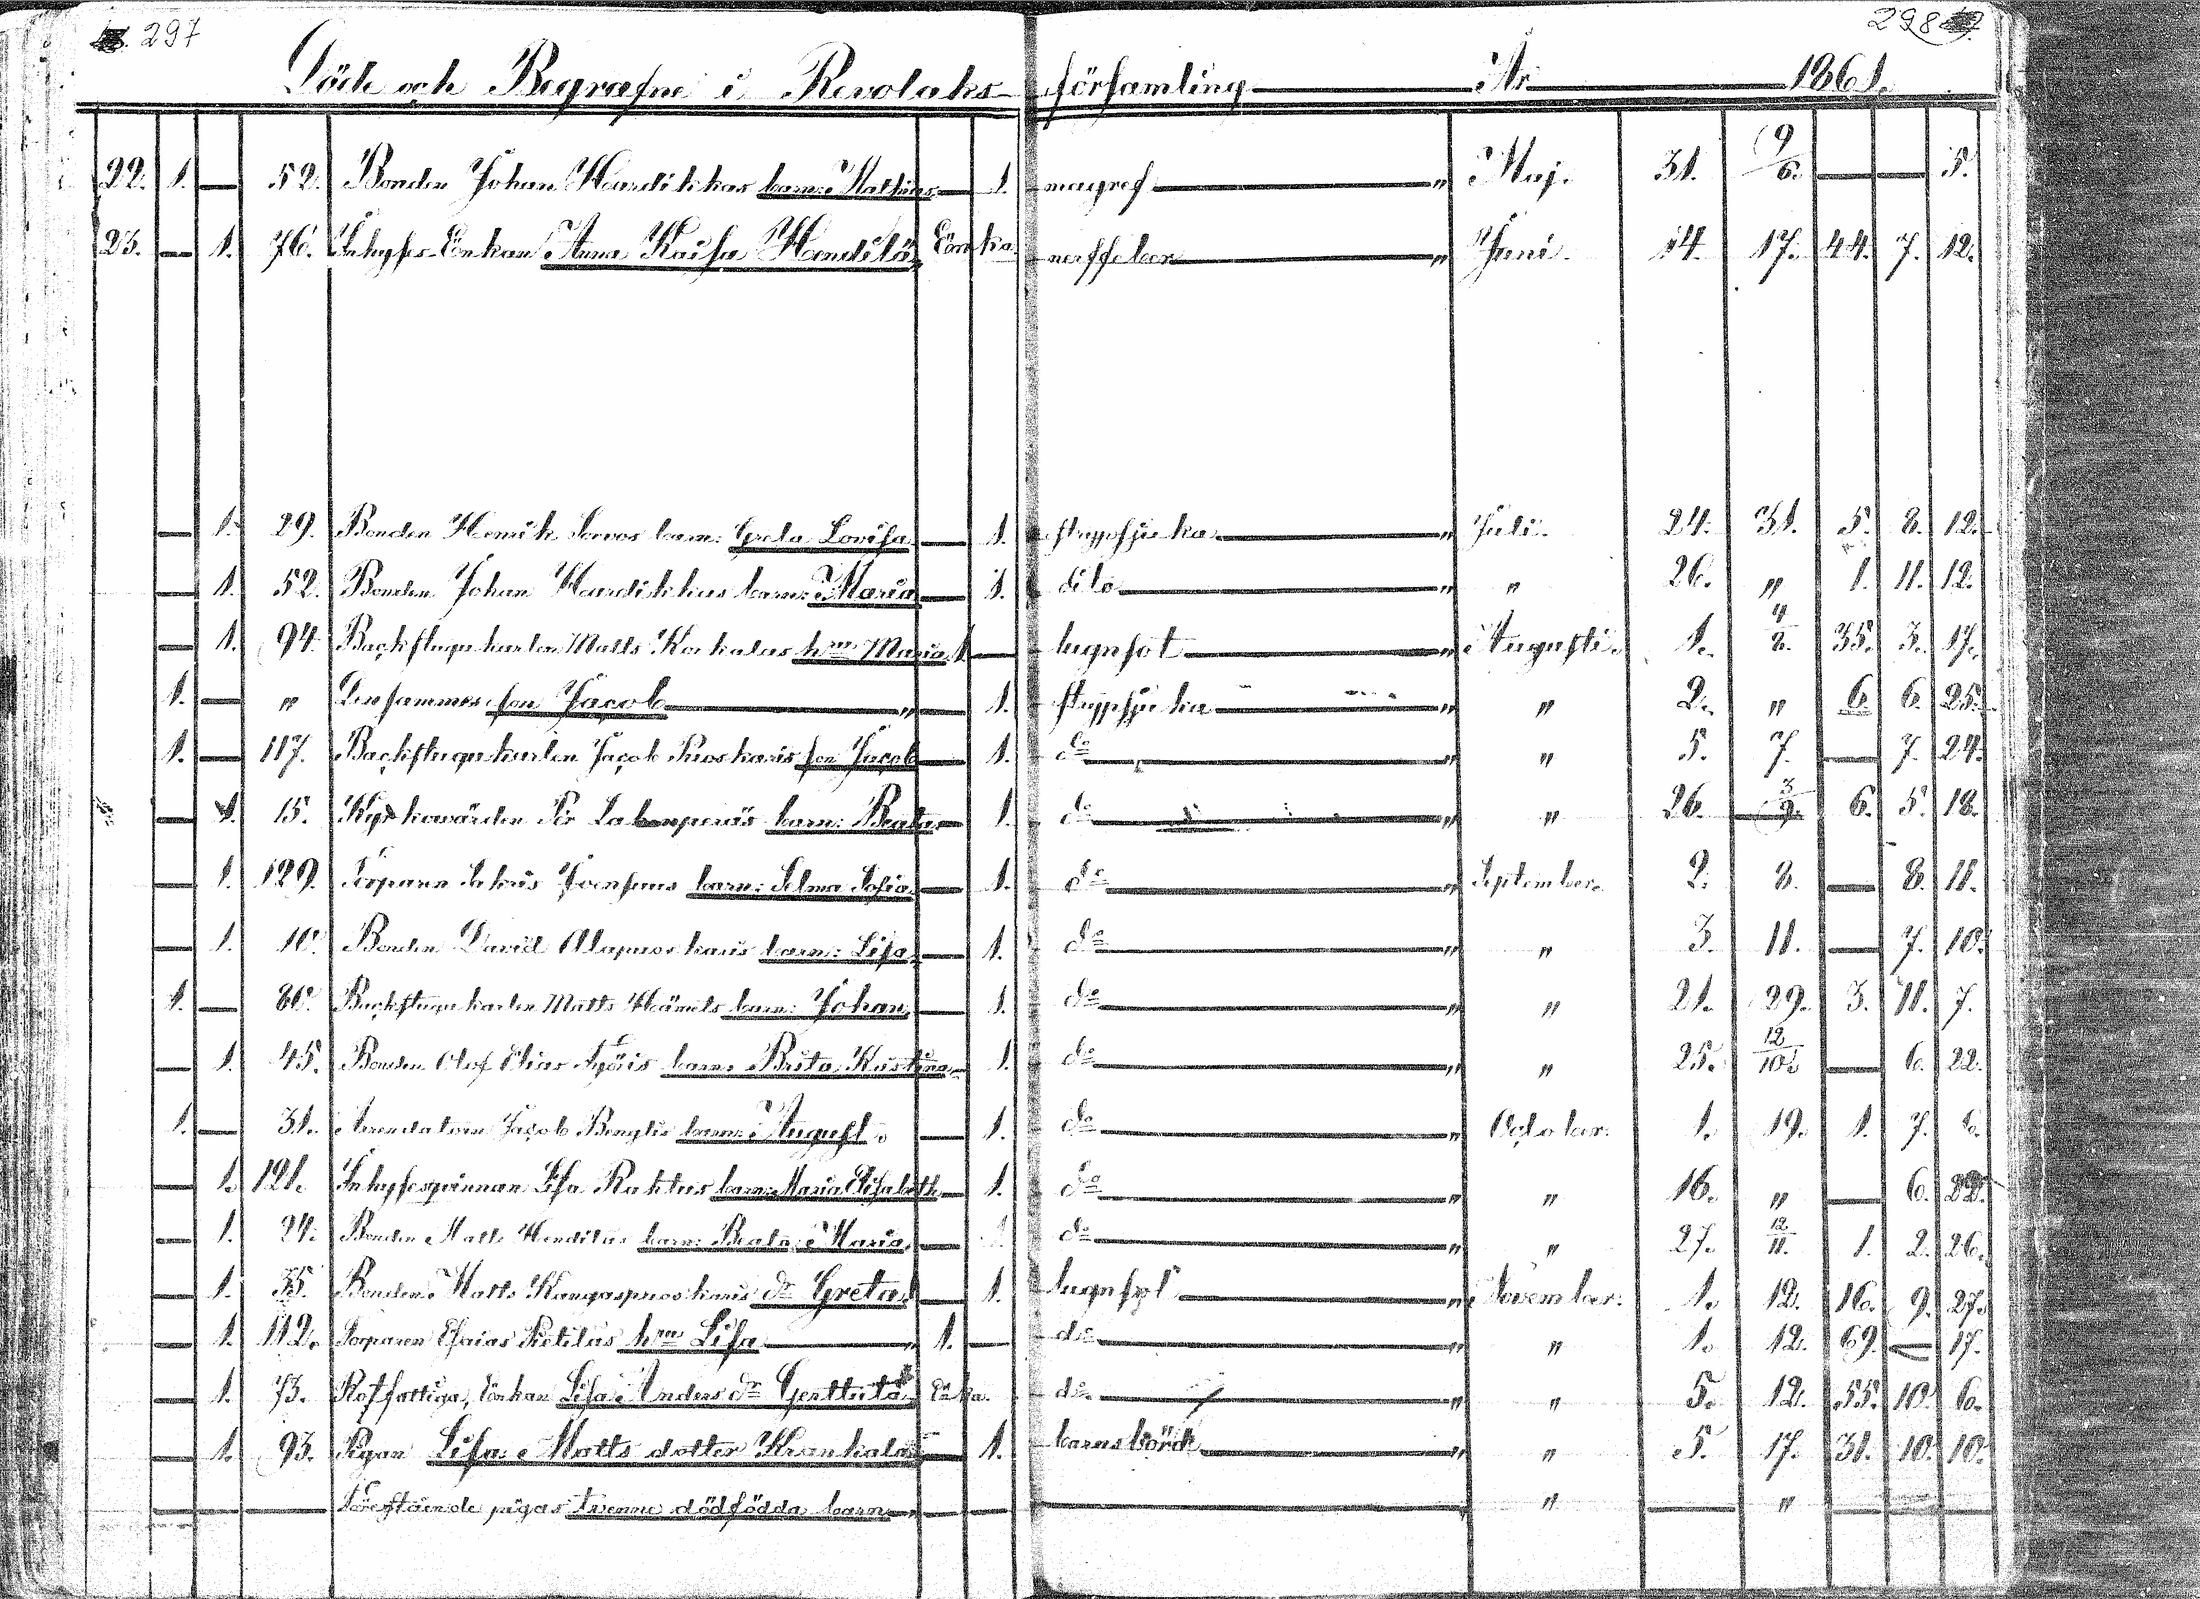 297 298
Döde och Begrafne i Revolaks församling År 1861.
22. 1. — 52. Bonden Johan Hardikkas barn: Mathias — 1. magref „ Maj. 31. 9/6. — — 5.
23. — 1. 76. Inhyses-Enkan Anna Kaisa Hendilä Enka. nerffeber „ Juni. 14. 17. 44. 7. 12.
— 1. 29. Bonden Henrik barn: Greta Lovisa — 1. strypsjuka „ Juli. 24. 31. 5. 8. 12.
— 1. 52. Bonden Johan Hardikkas barn: Maria — 1. dito „ „ 26. „ 1. 11. 12.
— 1. 94. Backstugukarlen Matts hru Maria 1. — lugnsot „ Augusti. 1. 4/8. 35. 3. 17.
1. — „ Densammes son Jacob „ — 1. strypsjuka „ „ 2. „ 6. 6. 25.
1. — 117. Backstugukarlen Jacob Puoskaris son Jacob — 1. do „ „ 5. 7. — 7. 24.
— 1. 15. Kyrkovärden Pär Lahenperäs barn: Beata — 1. do „ „ 26. 3/9. 6. 5. 18.
— 1. 129. Torparen barn: Selma Sofia — 1. do „ September. 2. 8. — 8. 11.
— 1. 10. Bonden David Alapuoskaris barn: Lisa — 1. do „ „ 3. 11. — 7. 10.
1. — 80. Backstugukarlen Matts barn: Johan — 1. do „ „ 21. 29. 3. 11. 7.
— 1. 45. Bonden Olof Elias barn: Brita Kristina — 1. do „ „ 25. 12/10. — 6. 22.
1. — 31. Arrendatorn Jacob Bengtis barn: August. — 1. do „ October. 1. 19. 1. 7. 6.
— 1. 121. Inhysesqvinnan Lisa Raktus barn: Maria Elisabeth — 1. do „ „ 16. „ — 6. 22.
— 1. 24. Bonden Matts Hendiläs barn: Beata Maria — 1. do „ „ 27. 12/11. 1. 2. 26.
— 1. 35. Bonden Matts Kangaspuoskaris dr Greta — 1. lugnsot „ November. 1. 12. 16. 9. 27.
— 1. 112. Torparen Esaias Pietiläs hru Lisa „ 1. — do „ „ 1. 12. 69. — 17.
— 1. 73. Rotfattiga, Enkan Lisa Anders dr Enka. do „ „ 5. 12. 55. 10. 6.
— 1. 93. Pigan Lisa Matts dotter Krankala — 1. barnsbörd „ „ 5. 17. 31. 10. 10.
— — — Förestående pigas tvenne dödfödda barn „ — — — „ — „ — — —